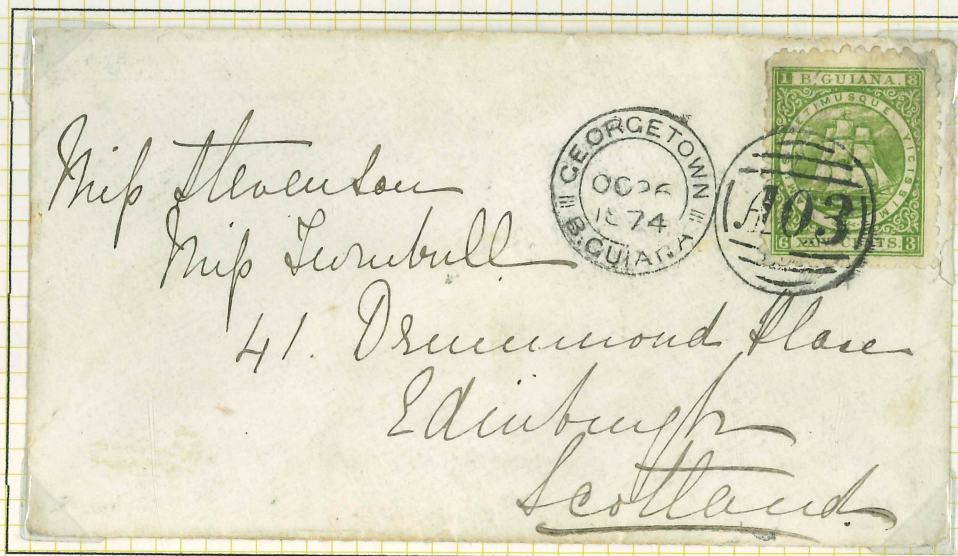 1 B. GUIANA. 8
PETIMUSQUE VICISSIM
6 CENTS. 3
GEORGETOWN
OC 26
1874
B. GUIANA
A03
Miss Stevenson
Miss Turnbull
41. Drummond Place
Edinburgh
Scotland